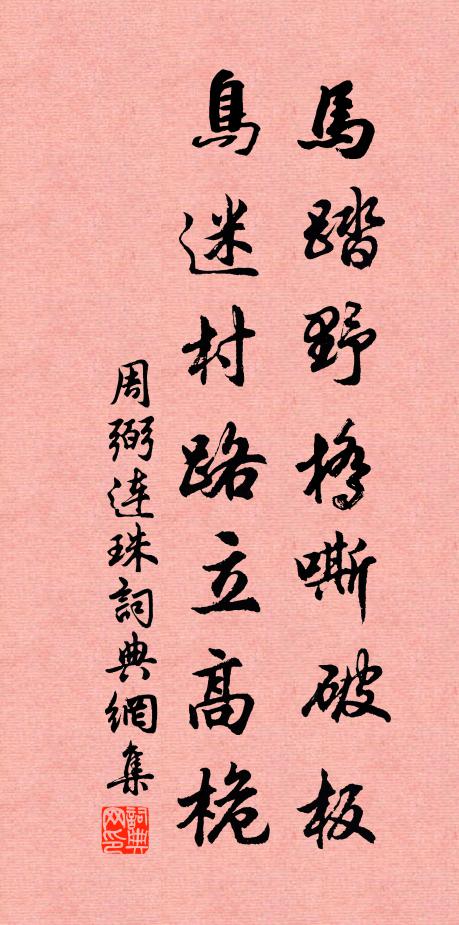 馬踏野橋嘶破板
鳥迷村路立高桅
周弼连珠詞典網集
詞典网印